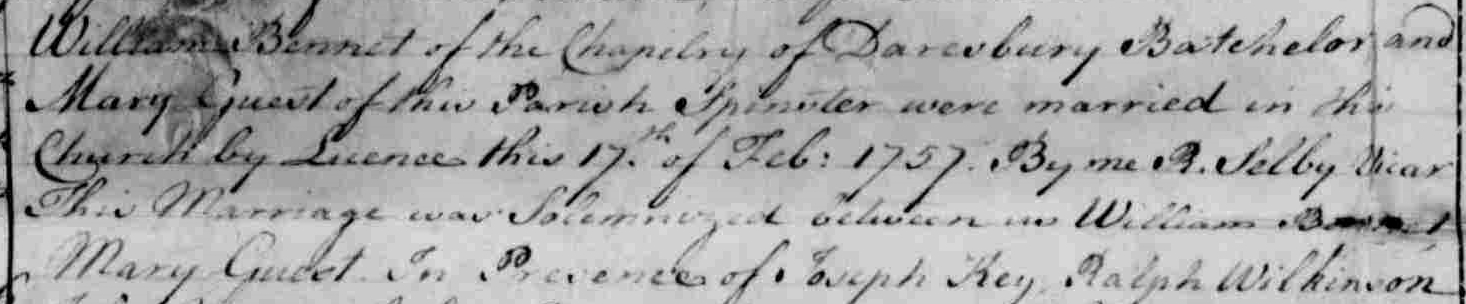 William Bennet of the Chapelry of Daresbury Batchelor and
Mary Guest of this Parish Spinster were married in this
Church by Licence this 17.th of Feb: 1757. By me R. Selby Vicar
This Marriage was Solemnized between us William Bennet
Mary Guest. In Presence of Joseph Key, Ralph Wilkinson